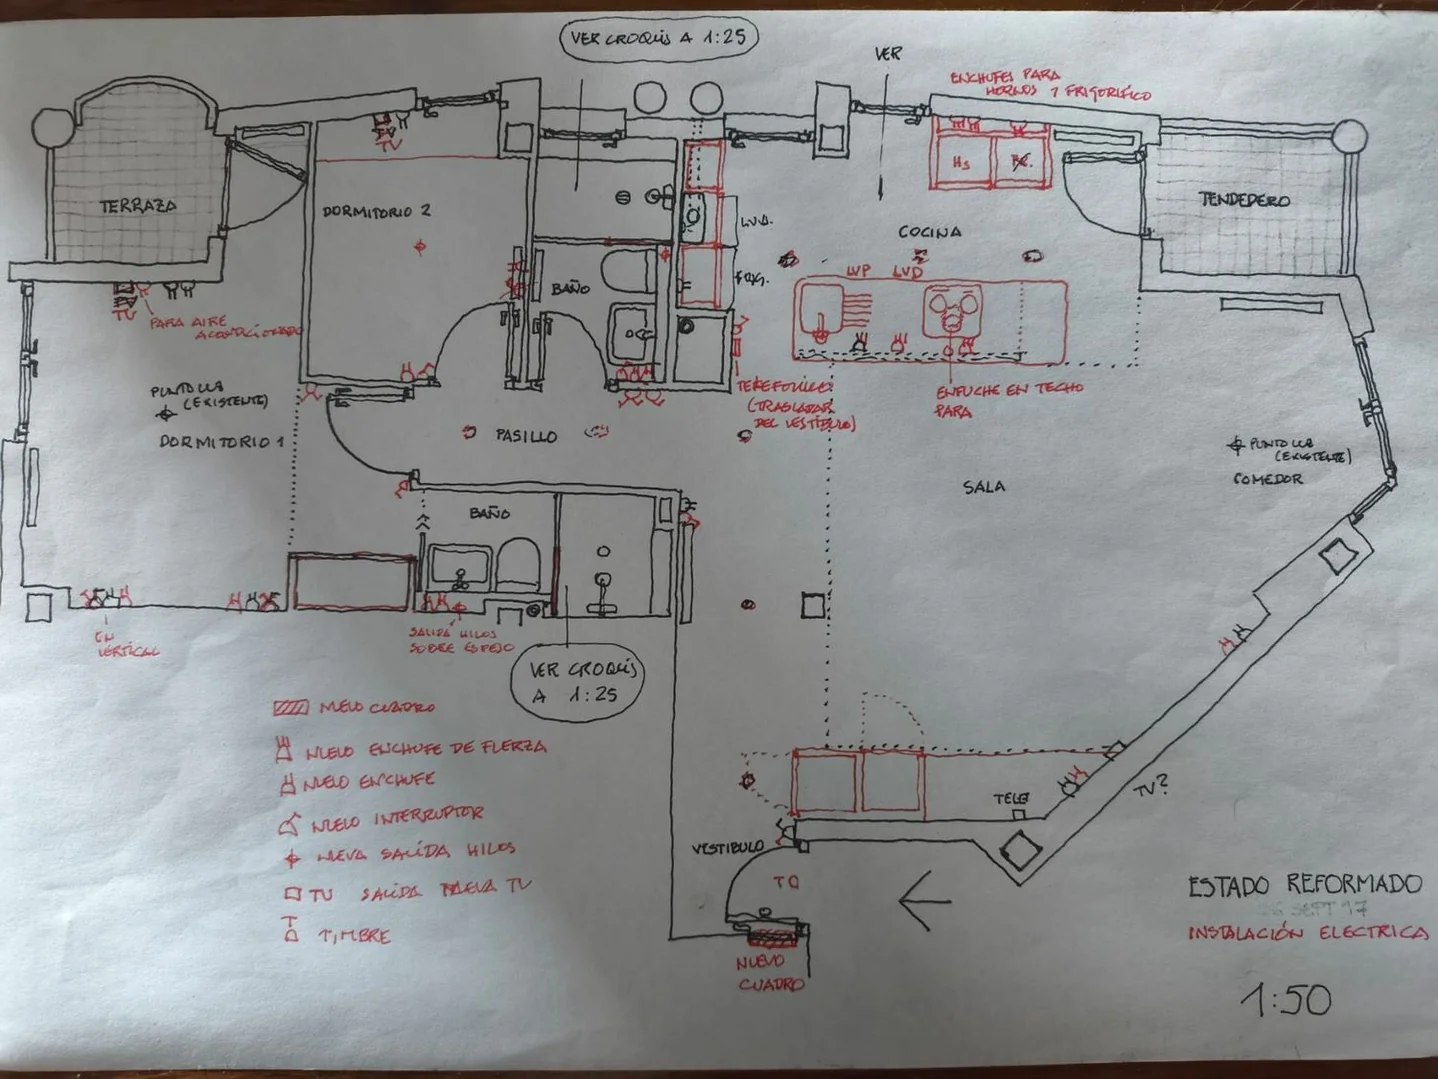 VER CROQUIS A 1:25
VER
ENCHUFES PARA
HORNOS Y FRIGORIFICO
TV
Hs
TERRAZA
DORMITORIO 2
TENDEDERO
LVA.
COCINA
FRIG.
LVP LVD
BAÑO
TV
PARA AIRE
ACONDICIONADO
PUNTO LUZ
(EXISTENTE)
DORMITORIO 1
PASILLO
TELEFONILLO
(TRASLADAR
DEL VESTÍBULO)
ENFUCHE EN TECHO
PARA
SALA
PUNTO LUZ
(EXISTENTE)
COMEDOR
BAÑO
EN
VERTICAL
SALIDA HILOS
SOBRE ESPEJO
VER CROQUIS
A 1:25
NUEVO CUADRO
NUEVO ENCHUFE DE FUERZA
NUEVO ENCHUFE
NUEVO INTERRUPTOR
NUEVA SALIDA HILOS
TV SALIDA NUEVA TV
TIMBRE
TELEF
TV?
VESTIBULO
NUEVO
CUADRO
ESTADO REFORMADO
SEPT 17
INSTALACIÓN ELECTRICA
1:50